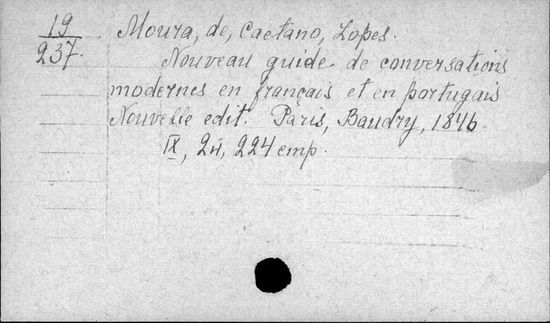 19
237.
Moura, de, Caetano, Lopes.
Nouveau guide de conversations
modernes en français et en portugais
Nouvelle edit. Paris, Baudry, 1846.
IX, 2н, 224 стр.